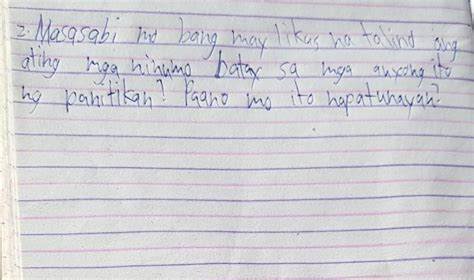 2. Masasabi mo bang may likas na talino ang
ating mga ninuno batay sa mga anyong ito
ng panitikan? Paano mo ito napatunayan?